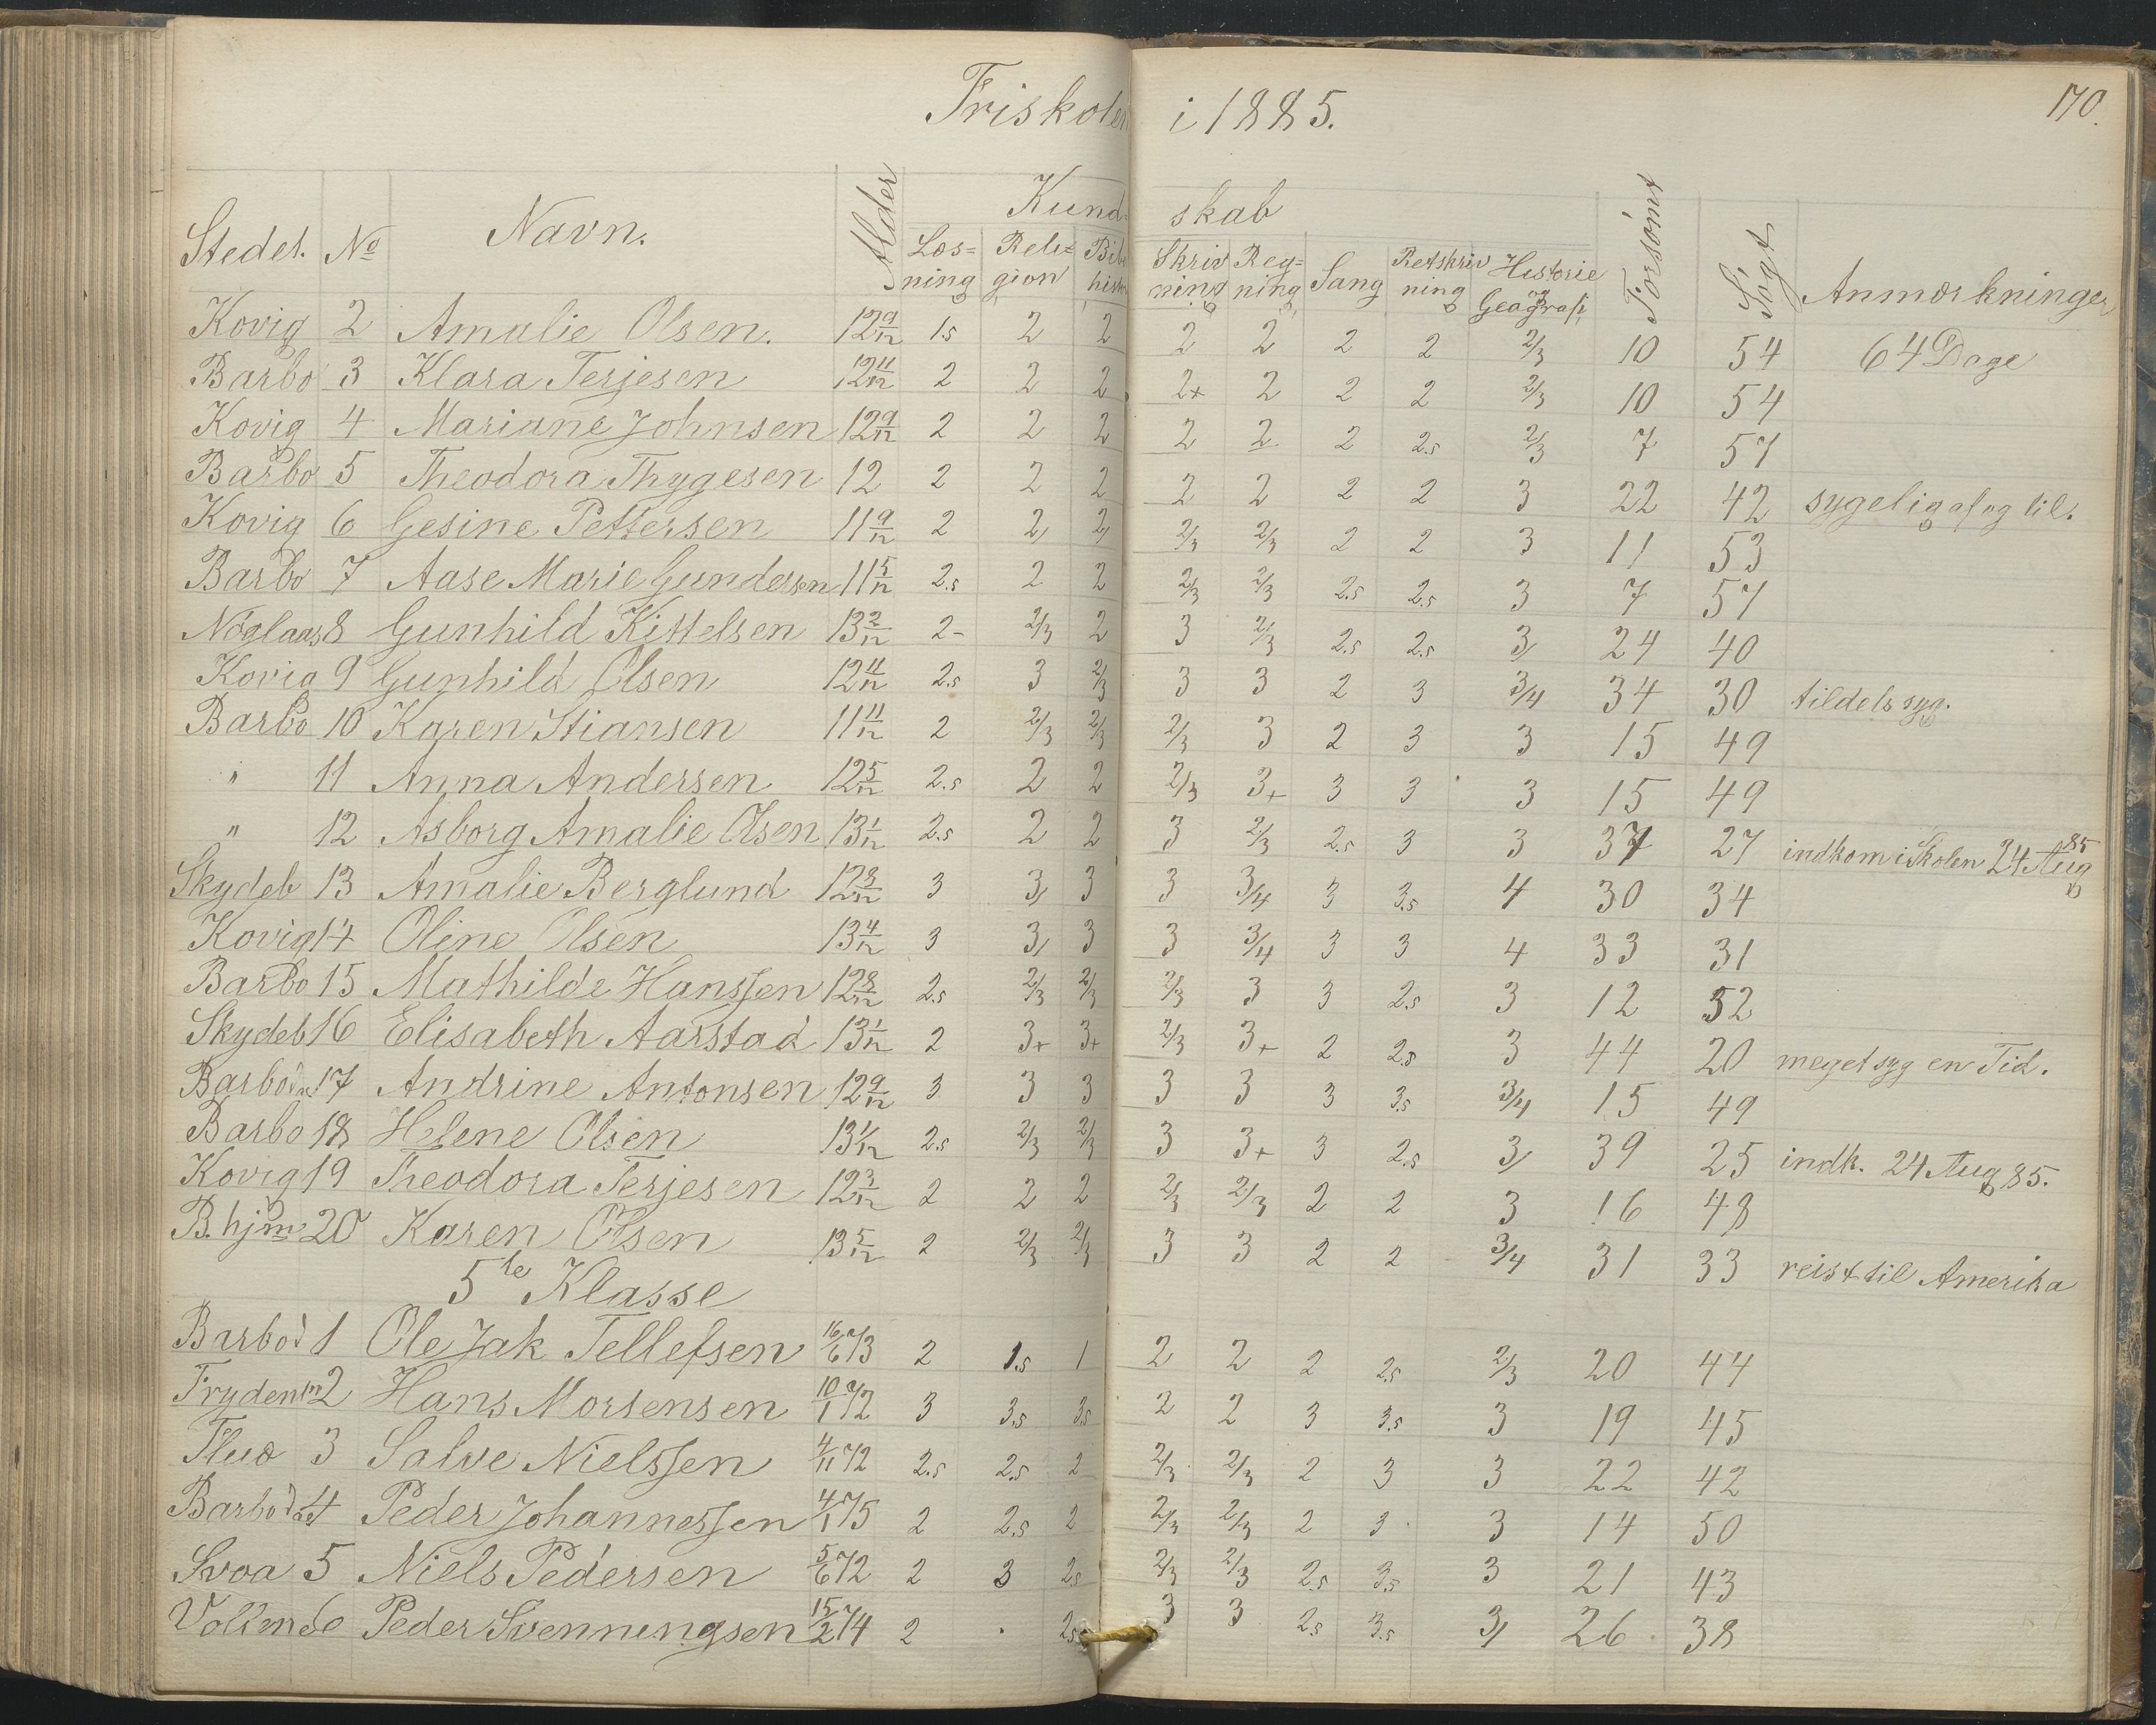 Friskolen i 1885.
170.
Stedet. No Navn. Alder Kundskab Forsömt Sögt Anmærkninger
Læsning Religion Bibhist Skrivning Regning Sang Retskrivning Historie og Geografi
Kovig 2 Amalie Olsen. 12 9/12 1.5 2 2 2 2 2 2 2/3 10 54 64 Dage
Barbo 3 Klara Terjesen 12 11/12 2 2 2 2+ 2 2 2 2/3 10 54
Kovig 4 Mariane Johnsen 12 9/12 2 2 2 2 2 2 2.5 2/3 7 57
Barbo 5 Theodora Thygesen 12 2 2 2 2 2 2 2 3 22 42 sygelig af og til.
Kovig 6 Gesine Pettersen 11 9/12 2 2 2 2/3 2/3 2 2 3 11 53
Barbo 7 Aase Marie Gundersen 11 5/12 2.5 2 2 2/3 2/3 2.5 2.5 3 7 57
Nöglaas 8 Gunhild Kittelsen 13 2/12 2- 2/3 2 3 2/3 2.5 2.5 3 24 40
Kovig 9 Gunhild Olsen 12 11/12 2.5 3 2/3 3 3 2 3 3/4 34 30 tildels syg.
Barbo 10 Karen Stiansen 11 11/12 2 2/3 2/3 2/3 3 2 3 3 15 49
" 11 Anna Andersen 12 5/12 2.5 2 2 2/3 3+ 3 3 3 15 49
" 12 Asborg Amalie Olsen 13 1/12 2.5 2 2 3 2/3 2.5 3 3 37 27 indkom i Skolen 24 Aug 85
Skydeb 13 Amalie Berglund 12 8/12 3 3 3 3 3/4 3 3.5 4 30 34
Kovig 14 Oline Olsen 13 4/12 3 3 3 3 3/4 3 3 4 33 31
Barbo 15 Mathilde Hanssen 12 8/12 2.5 2/3 2/3 2/3 3 3 2.5 3 12 52
Skydeb 16 Elisabeth Aarstad 13 1/12 2 3+ 3+ 2/3 3+ 2 2.5 3 44 20 meget syg en Tid.
Barbod 17 Andrine Antonsen 12 9/12 3 3 3 3 3 3 3.5 3/4 15 49
Barbo 18 Helene Olsen 13 1/12 2.5 2/3 2/3 3 3+ 3 2.5 3 39 25 indk. 24 Aug 85.
Kovig 19 Theodora Terjesen 12 3/12 2 2 2 2/3 2/3 2 2 3 16 48
B. hjm 20 Karen Olsen 13 5/12 2 2/3 2/3 3 3 2 2 3/4 31 33 reist til Amerika
5te Klasse
Barbod 1 Ole Jak Tellefsen 16/6 73 2 1.5 1 2 2 2 2.5 2/3 20 44
Frydenm 2 Hans Morsensen 10/1 72 3 3.5 3.5 2 2 3 3.5 3 19 45
3 Salve Nielssen 4/11 72 2.5 2.5 2 2/3 2/3 2 3 3 22 42
Barbod 4 Peder Johannessen 4/1 75 2 2.5 2 2/3 2/3 2 3 3 14 50
Svoa 5 Niels Pedersen 5/6 72 2 3 2.5 2/3 2/3 2.5 3.5 3 21 43
Vollen 6 Peder Svenningsen 15/2 74 2 . 2.5 3 3 2.5 3.5 3 26 38